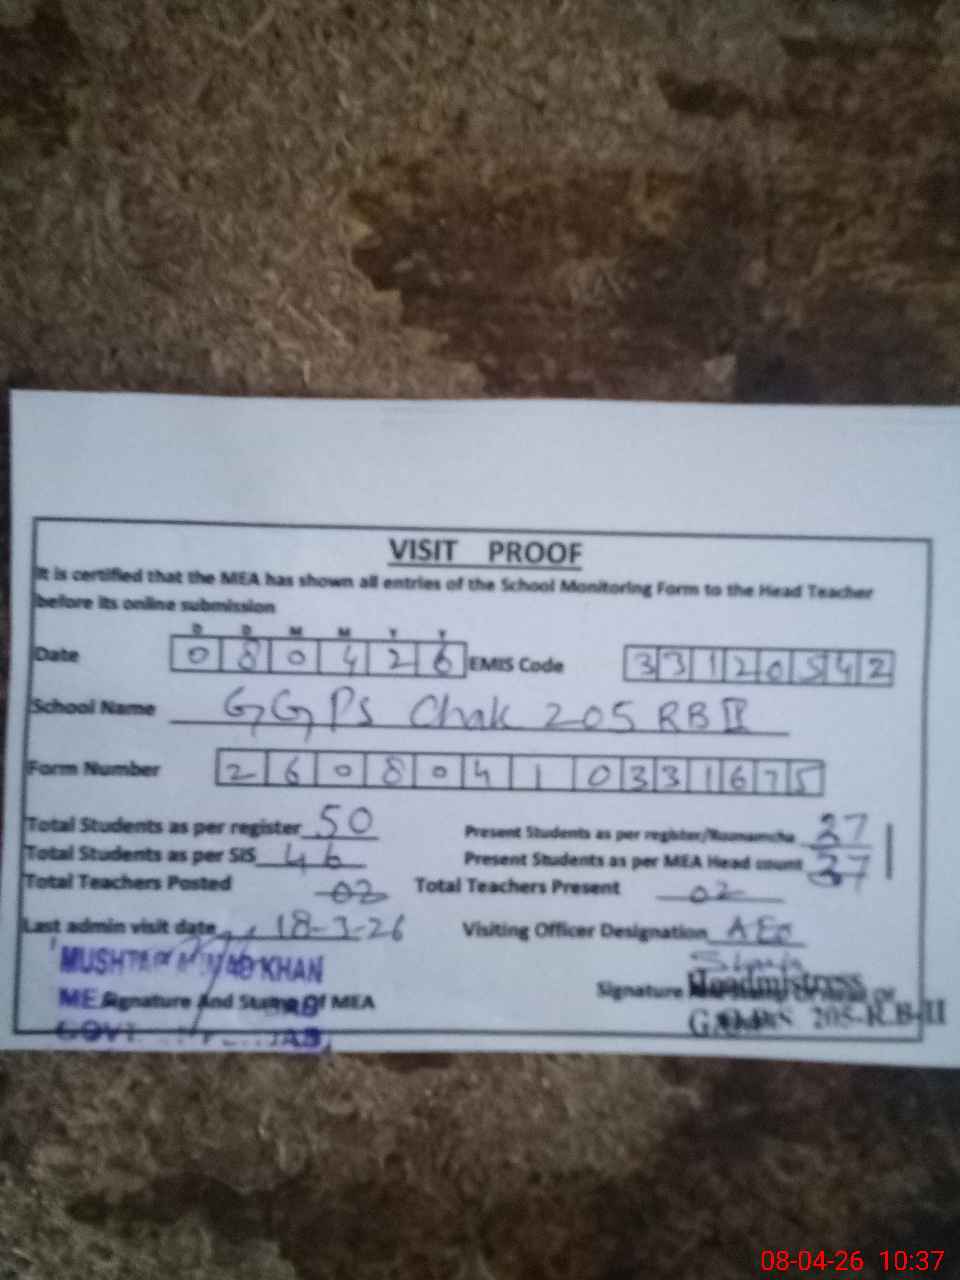 VISIT PROOF
It is certified that the MEA has shown all entries of the School Monitoring Form to the Head Teacher
before its online submission
D D M M Y Y
Date 0 8 0 4 2 6 EMIS Code 3 3 1 2 0 5 4 2
School Name GGPS Chak 205 RB II
Form Number 2 6 0 8 0 4 1 0 3 3 1 6 7 5
Total Students as per register 50 Present Students as per register/Roznamcha 37
Total Students as per SIS 46 Present Students as per MEA Head count 37
Total Teachers Posted 02 Total Teachers Present 02
Last admin visit date 18-3-26 Visiting Officer Designation AEO
MUSHTAQ AHMAD KHAN
MEA Signature And Stamp Of MEA Signature Headmistress
GOVT. PUNJAB 205-R.B-II
08-04-26 10:37